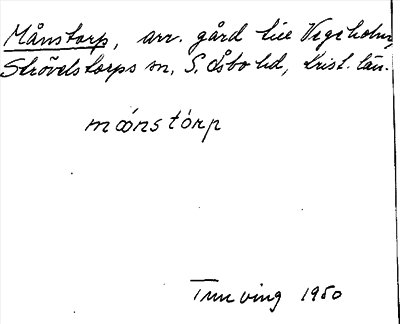 Månstorp, arr. gård till Vegeholm,
Strövelstorps sn, S. Åsbo hd, Krist. län.
móonstórp
Tuneving 1950